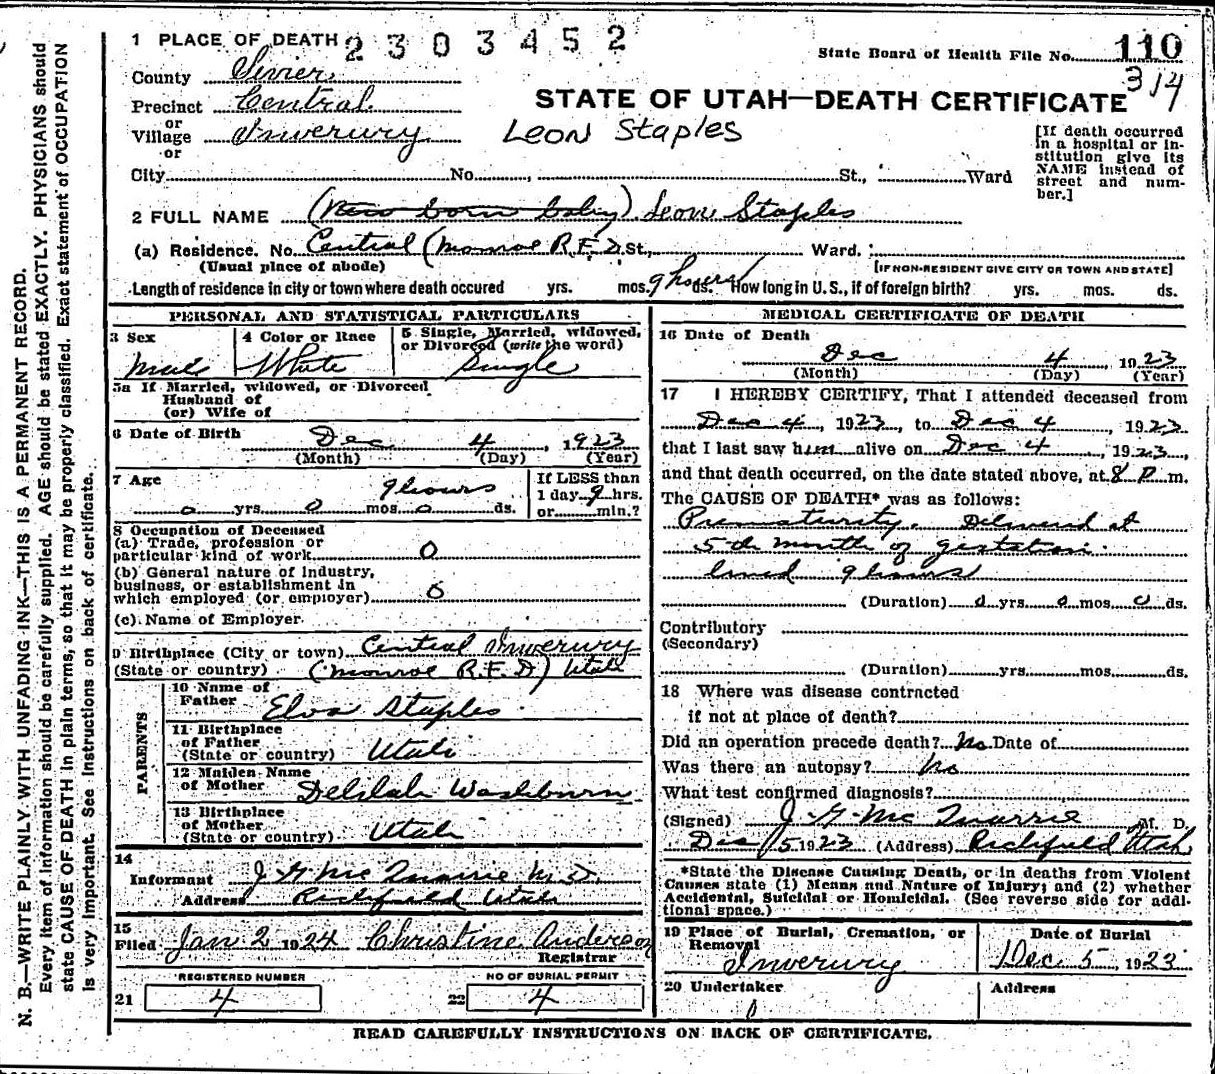 1 PLACE OF DEATH 2303452
State Board of Health File No. 110
314
County Sevier
Precinct Central
or
Village Inverury
or
STATE OF UTAH—DEATH CERTIFICATE
Leon Staples
[If death occurred in a hospital or institution give its NAME instead of street and number.]
City No. , St., Ward
2 FULL NAME (New born baby) Leon Staples
(a) Residence. No. Central (Monroe R.F.D St., Ward.
(Usual place of abode) [IF NON-RESIDENT GIVE CITY OR TOWN AND STATE]
Length of residence in city or town where death occured yrs. mos. 9 hours ds. How long in U. S., if of foreign birth? yrs. mos. ds.
PERSONAL AND STATISTICAL PARTICULARS
3 Sex
Male
4 Color or Race
White
5 Single, Married, widowed, or Divorced (write the word)
Single
5a If Married, widowed, or Divorced
Husband of
(or) Wife of
6 Date of Birth Dec 4, 1923
(Month) (Day) (Year)
7 Age 9 hours
0 yrs. 0 mos. 0 ds.
If LESS than
1 day 9 hrs.
or min.?
8 Occupation of Deceased
(a) Trade, profession or
particular kind of work 0
(b) General nature of Industry,
business, or establishment in
which employed (or employer) 0
(c) Name of Employer
9 Birthplace (City or town) Central Inverury
(State or country) (Monroe R.F.D) Utah
PARENTS
10 Name of
Father Elva Staples
11 Birthplace
of Father
(State or country) Utah
12 Maiden Name
of Mother Delilah Washburn
13 Birthplace
of Mother
(State or country) Utah
14
Informant J G McQuarrie M.D.
Address Richfield Utah
15
Filed Jan 2 1924 Christine Anderson
Registrar
REGISTERED NUMBER
21 4
NO OF BURIAL PERMIT
22 4
MEDICAL CERTIFICATE OF DEATH
16 Date of Death
Dec 4, 1923
(Month) (Day) (Year)
17 I HEREBY CERTIFY, That I attended deceased from
Dec 4, 1923, to Dec 4, 1923
that I last saw him alive on Dec 4, 1923,
and that death occurred, on the date stated above, at 8 P m.
The CAUSE OF DEATH* was as follows:
Prematurity. Delivered at
5th month of gestation.
lived 9 hours
(Duration) 0 yrs. 0 mos. 0 ds.
Contributory
(Secondary)
(Duration) yrs. mos. ds.
18 Where was disease contracted
if not at place of death?
Did an operation precede death? No Date of
Was there an autopsy? No
What test confirmed diagnosis?
(Signed) J G McQuarrie M. D.
Dec 15 1923 (Address) Richfield Utah
*State the Disease Causing Death, or in deaths from Violent
Causes state (1) Means and Nature of Injury; and (2) whether
Accidental, Suicidal or Homicidal. (See reverse side for addi-
tional space.)
19 Place of Burial, Cremation, or
Removal
Inverury
Date of Burial
Dec 5, 1923
20 Undertaker
Address
READ CAREFULLY INSTRUCTIONS ON BACK OF CERTIFICATE.
N. B.—WRITE PLAINLY WITH UNFADING INK—THIS IS A PERMANENT RECORD.
Every item of information should be carefully supplied. AGE should be stated EXACTLY. PHYSICIANS should
state CAUSE OF DEATH in plain terms, so that it may be properly classified. Exact statement of OCCUPATION
is very important. See Instructions on back of certificate.